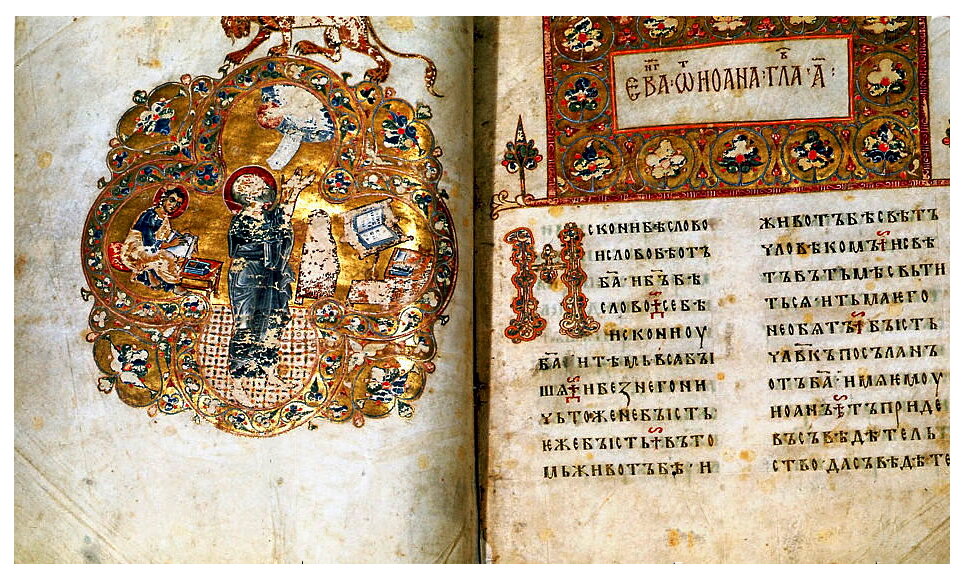 ЕВА·ѠИОАНА·ГЛА·А҃:
ИСКОНИБѢСЛОВО
ИСЛОВОБѢОТЪ
БА҃·ИБЪ҃БѢ
СЛОВО·СЕБѢ
ИСКОНИОУ
БА҃·ИТѢМЬВСАБЫ
ША·ИБЕЗНЕГОНИ
ЧЬТОЖЕНЕБЫСТЬ·
ЕЖЕБЫСТЬ·ВЪТО
МЬЖИВОТЪБѢ·И
ЖИВОТЪБѢСВѢТЪ
ЧЛОВѢКОМЪ·ИСВѢ
ТЪВЪТЬМѢСВЬТИ
ТЬСЯ·ИТЬМАѤГО
НЕОБѦТЪ·БЫСТЬ
ЧЛ҃ВКЪПОСЪЛАНЪ
ОТЪБА҃·ИМѦѤМОУ
ИОАНЪ·ТЪПРИДЕ
ВЪСЪВѢДѢТЕЛЬ
СТВО·ДАСЪВѢДѢТЕ